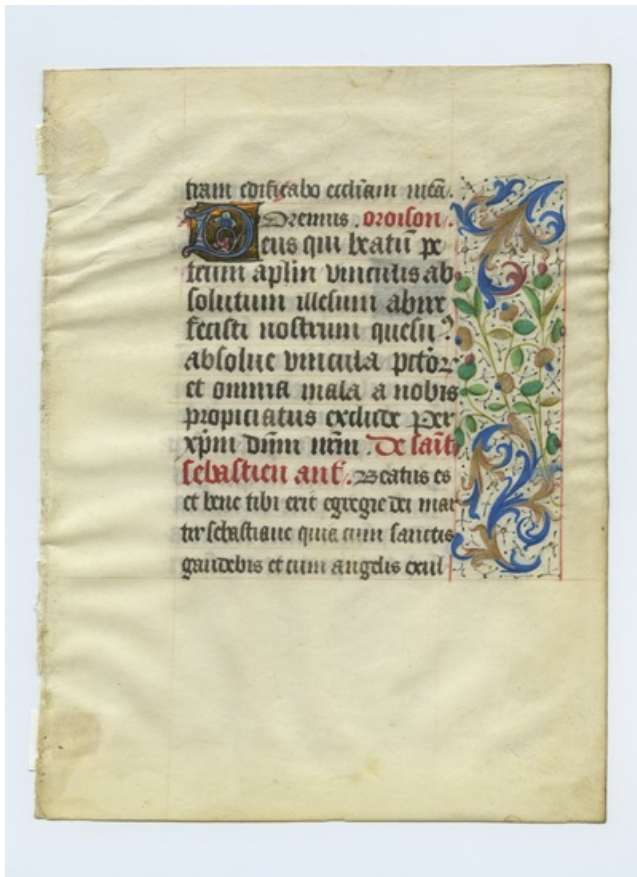 tram edificabo eccliam meā.
Oremus. oroison.
Deus qui beatū pe
trum aplm vinculis ab
solutum illesum abire
fecisti nostrum quesu
absolue vincula pctōr
et omnia mala a nobis
propiciatus exclude Per
xpm dnm nrm. De sait
sebastien ant. Beatus es
et bene tibi erit egregie dei mar
tir sebastiane quia cum sanctis
gaudebis et cum angelis exul